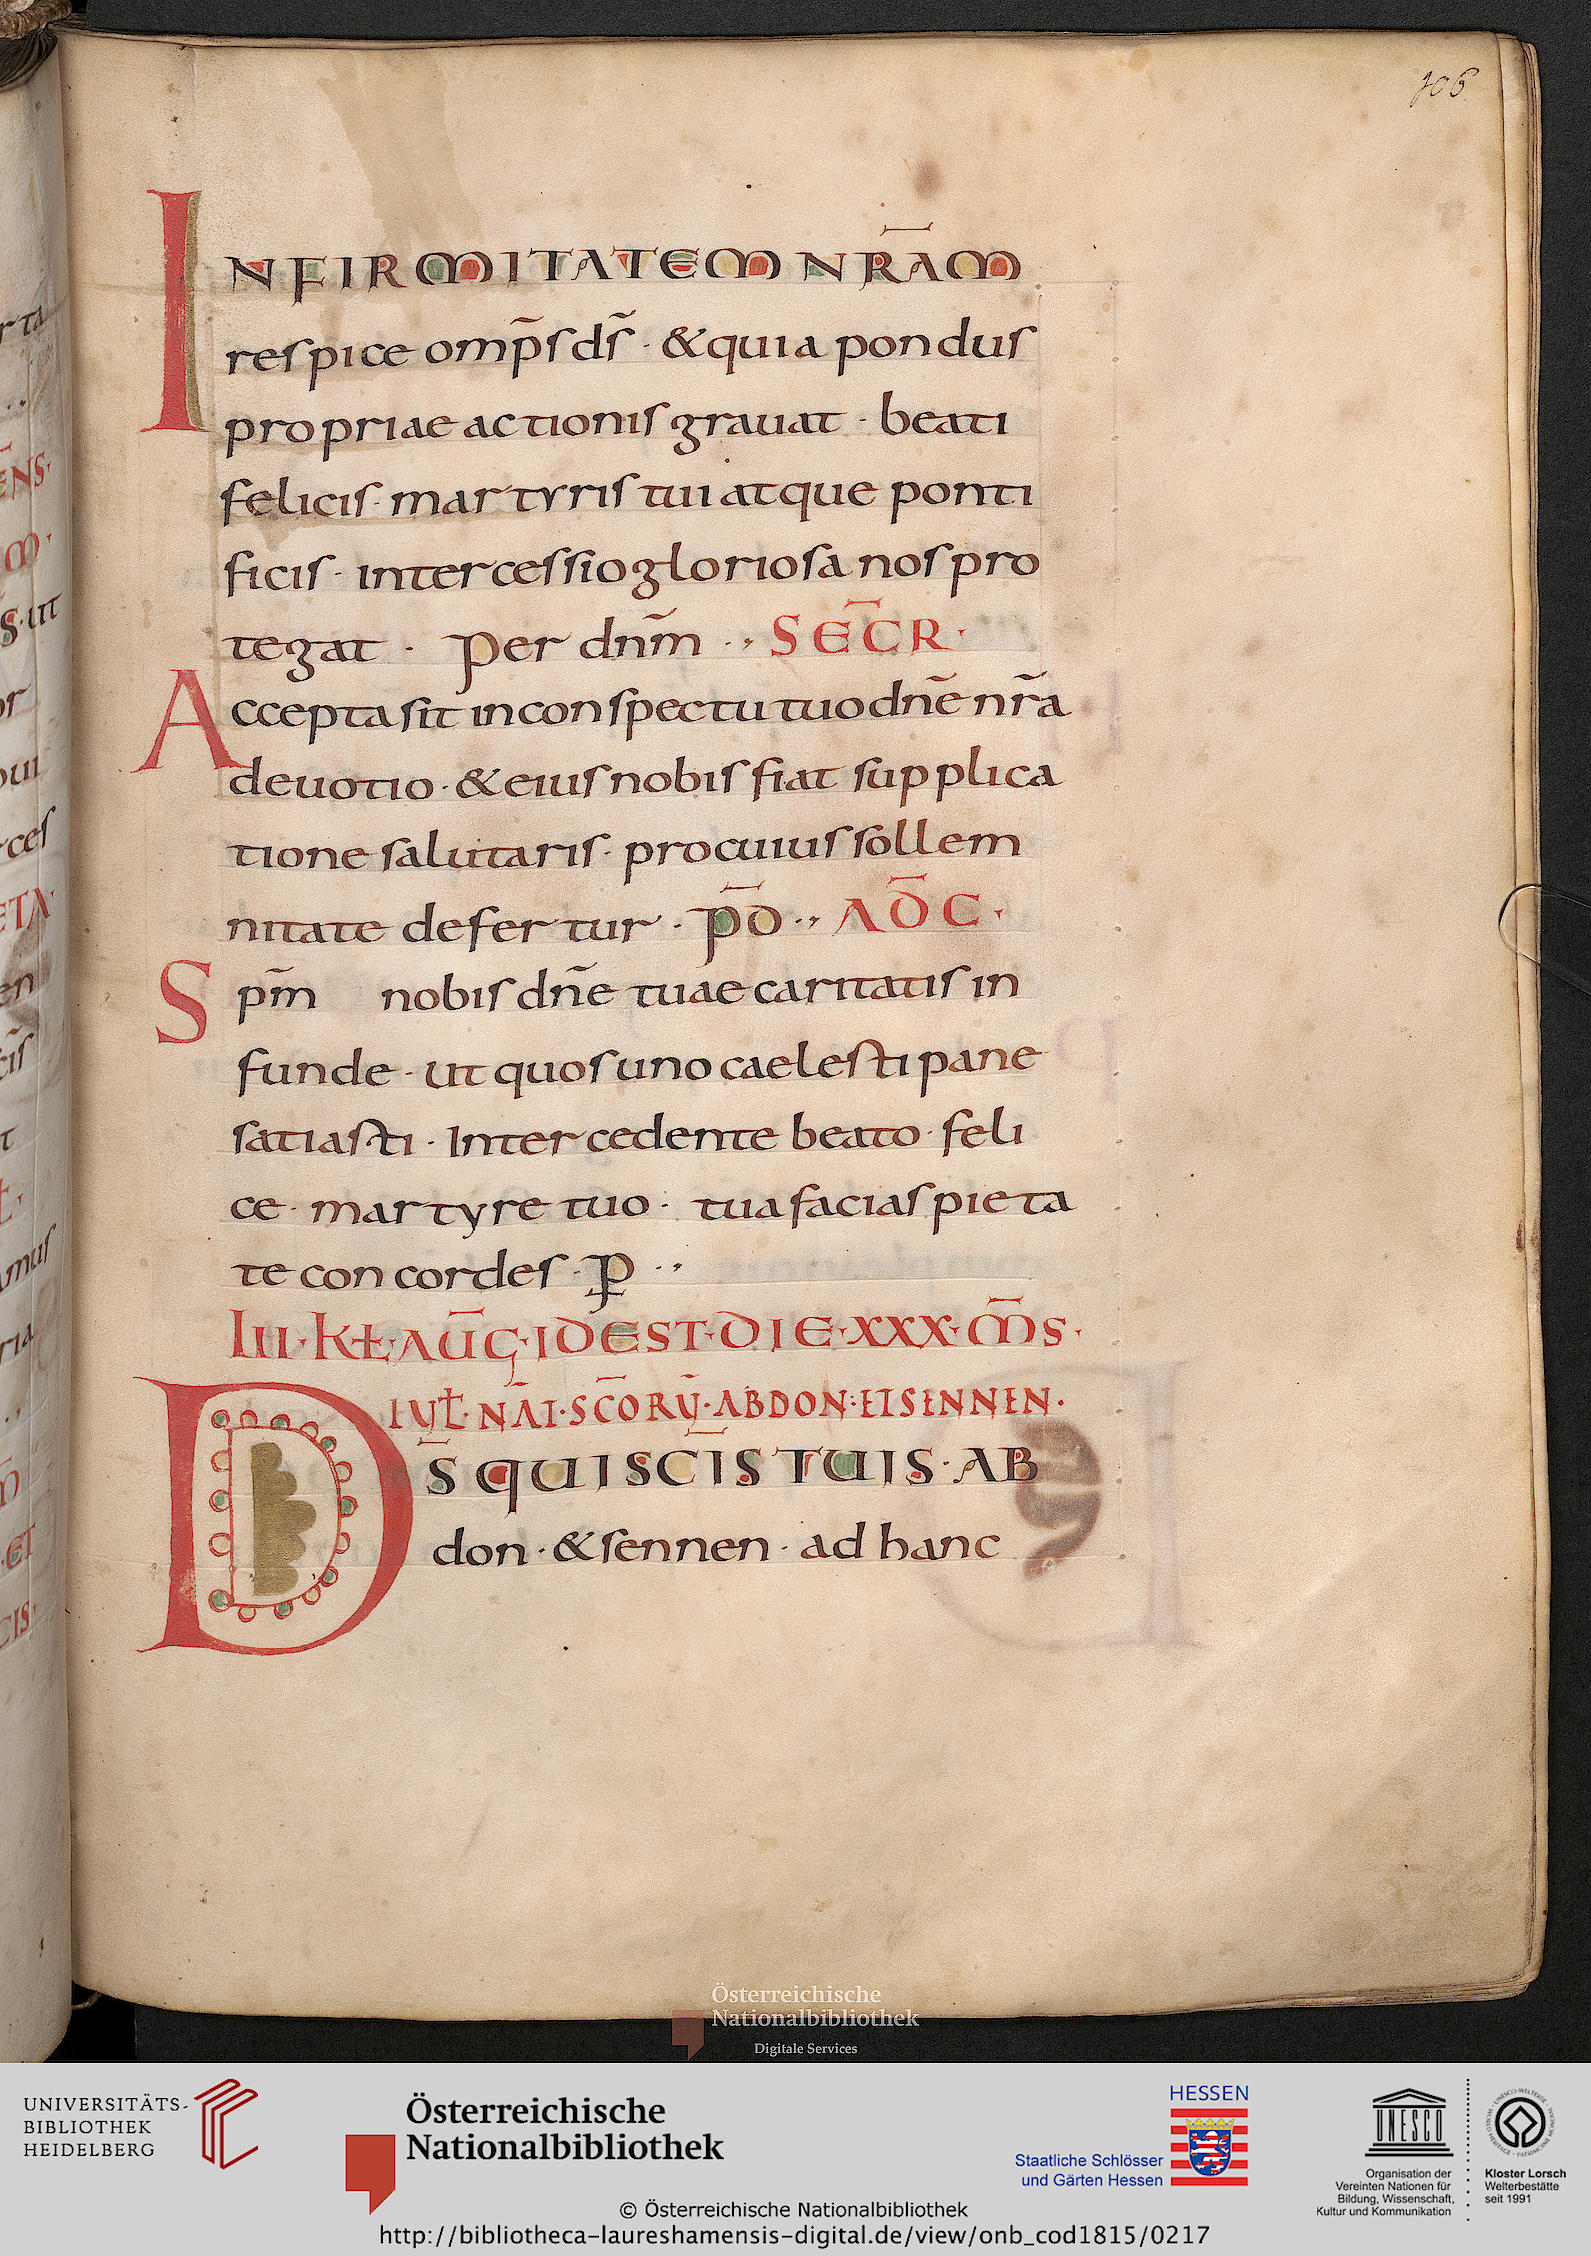 106
INFIRMITATEM NR̄AM
respice omp̄s ds̄ · & quia pondus
propriae actionis grauat · beati
felicis · martyris tui atque ponti
ficis · intercessio gloriosa nos pro
tegat · Per dnm̄ ·, SEC̄R ·
Accepta sit in conspectu tuo dnē nr̄a
deuotio · & eius nobis fiat supplica
tione salutaris · pro cuius sollem
nitate defertur · p̄d ·, AD̄C ·
Spm̄ nobis dn̄e tuae caritatis in
funde · ut quos uno caelesti pane
satiasti · Intercedente beato · feli
ce · martyre tuo · tua facias pieta
te concordes · P̲ ·,
III · KŁ · AUḠ · ID EST · DIE · XXX · M̄S ·
IUŁ · NĀT · SC̄ORŪ · ABDON · ET SENNEN ·
DS̄ QUI SC̄IS TUIS · AB
don · & sennen · ad hanc
Österreichische
Nationalbibliothek
Digitale Services
UNIVERSITÄTS-
BIBLIOTHEK
HEIDELBERG
Österreichische
Nationalbibliothek
HESSEN
Staatliche Schlösser
und Gärten Hessen
UNESCO
Organisation der
Vereinten Nationen für
Bildung, Wissenschaft,
Kultur und Kommunikation
Kloster Lorsch
Welterbestätte
seit 1991
© Österreichische Nationalbibliothek
http://bibliotheca-laureshamensis-digital.de/view/onb_cod1815/0217